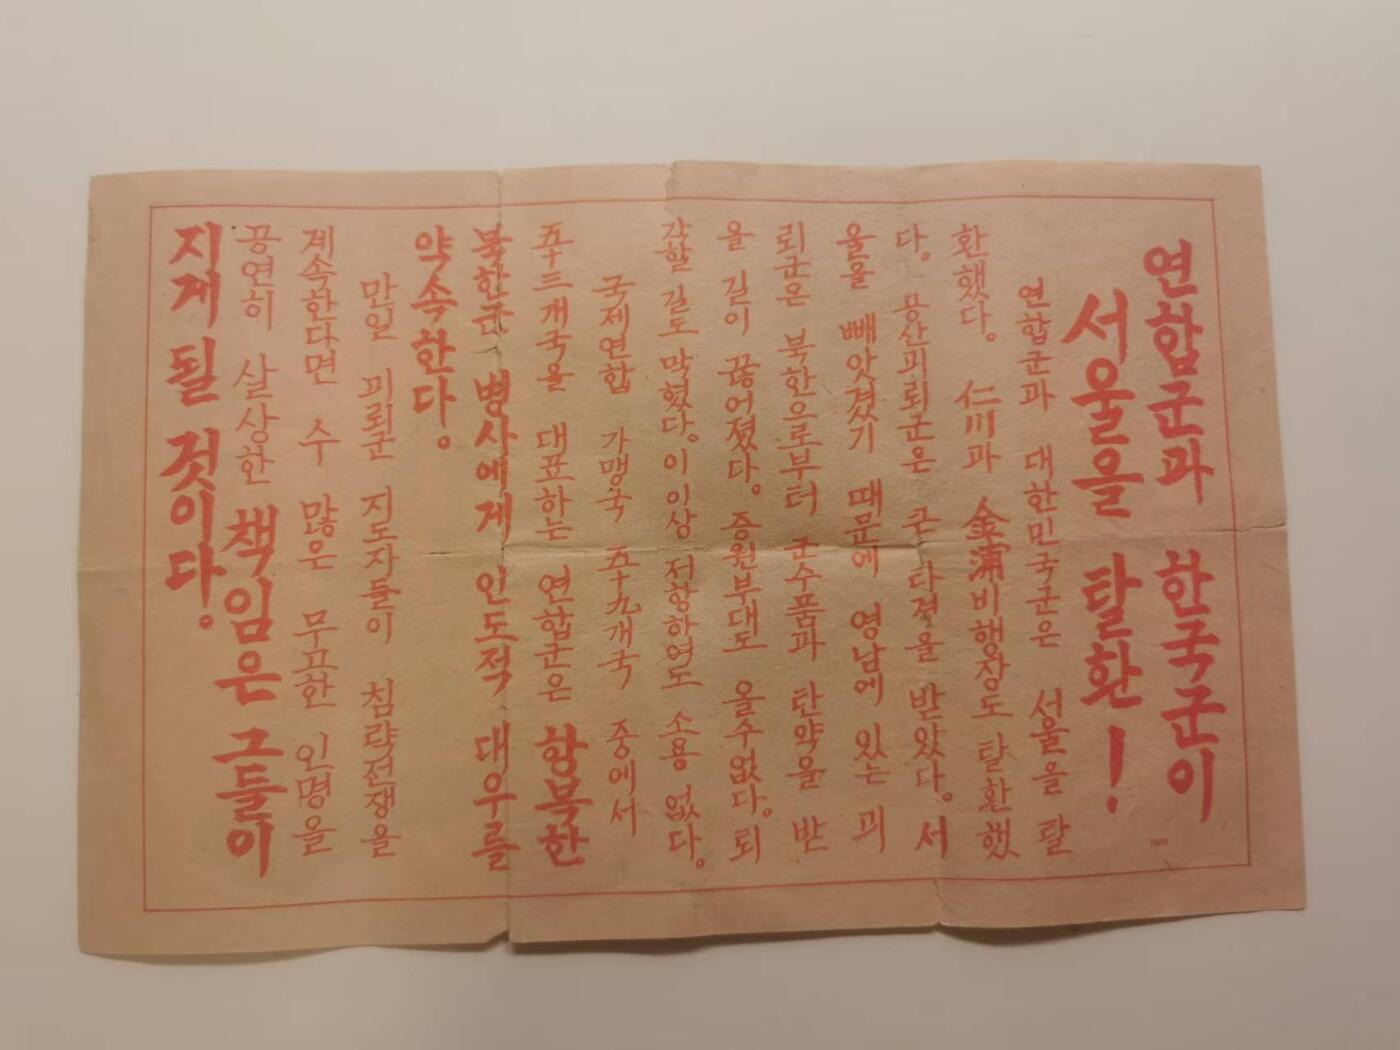 연합군과 한국군이
서울을 탈환!
연합군과 대한민국군은 서울을 탈
환했다. 仁川과 金浦비행장도 탈환했
다. 공산괴뢰군은 큰 타격을 받았다. 서
울을 빼앗겼기 때문에 영남에 있는 괴
뢰군은 북한으로부터 군수품과 탄약을 받
을 길이 끊어졌다. 증원부대도 올수없다. 퇴
각할 길도 막혔다. 이 이상 저항하여도 소용 없다.
국제연합 가맹국 五十九개국 중에서
五十三개국을 대표하는 연합군은 항복한
북한군 병사에게 인도적 대우를
약속한다.
만일 괴뢰군 지도자들이 침략전쟁을
계속한다면 수 많은 무고한 인명을
공연히 살상한 책임은 그들이
지게 될 것이다.